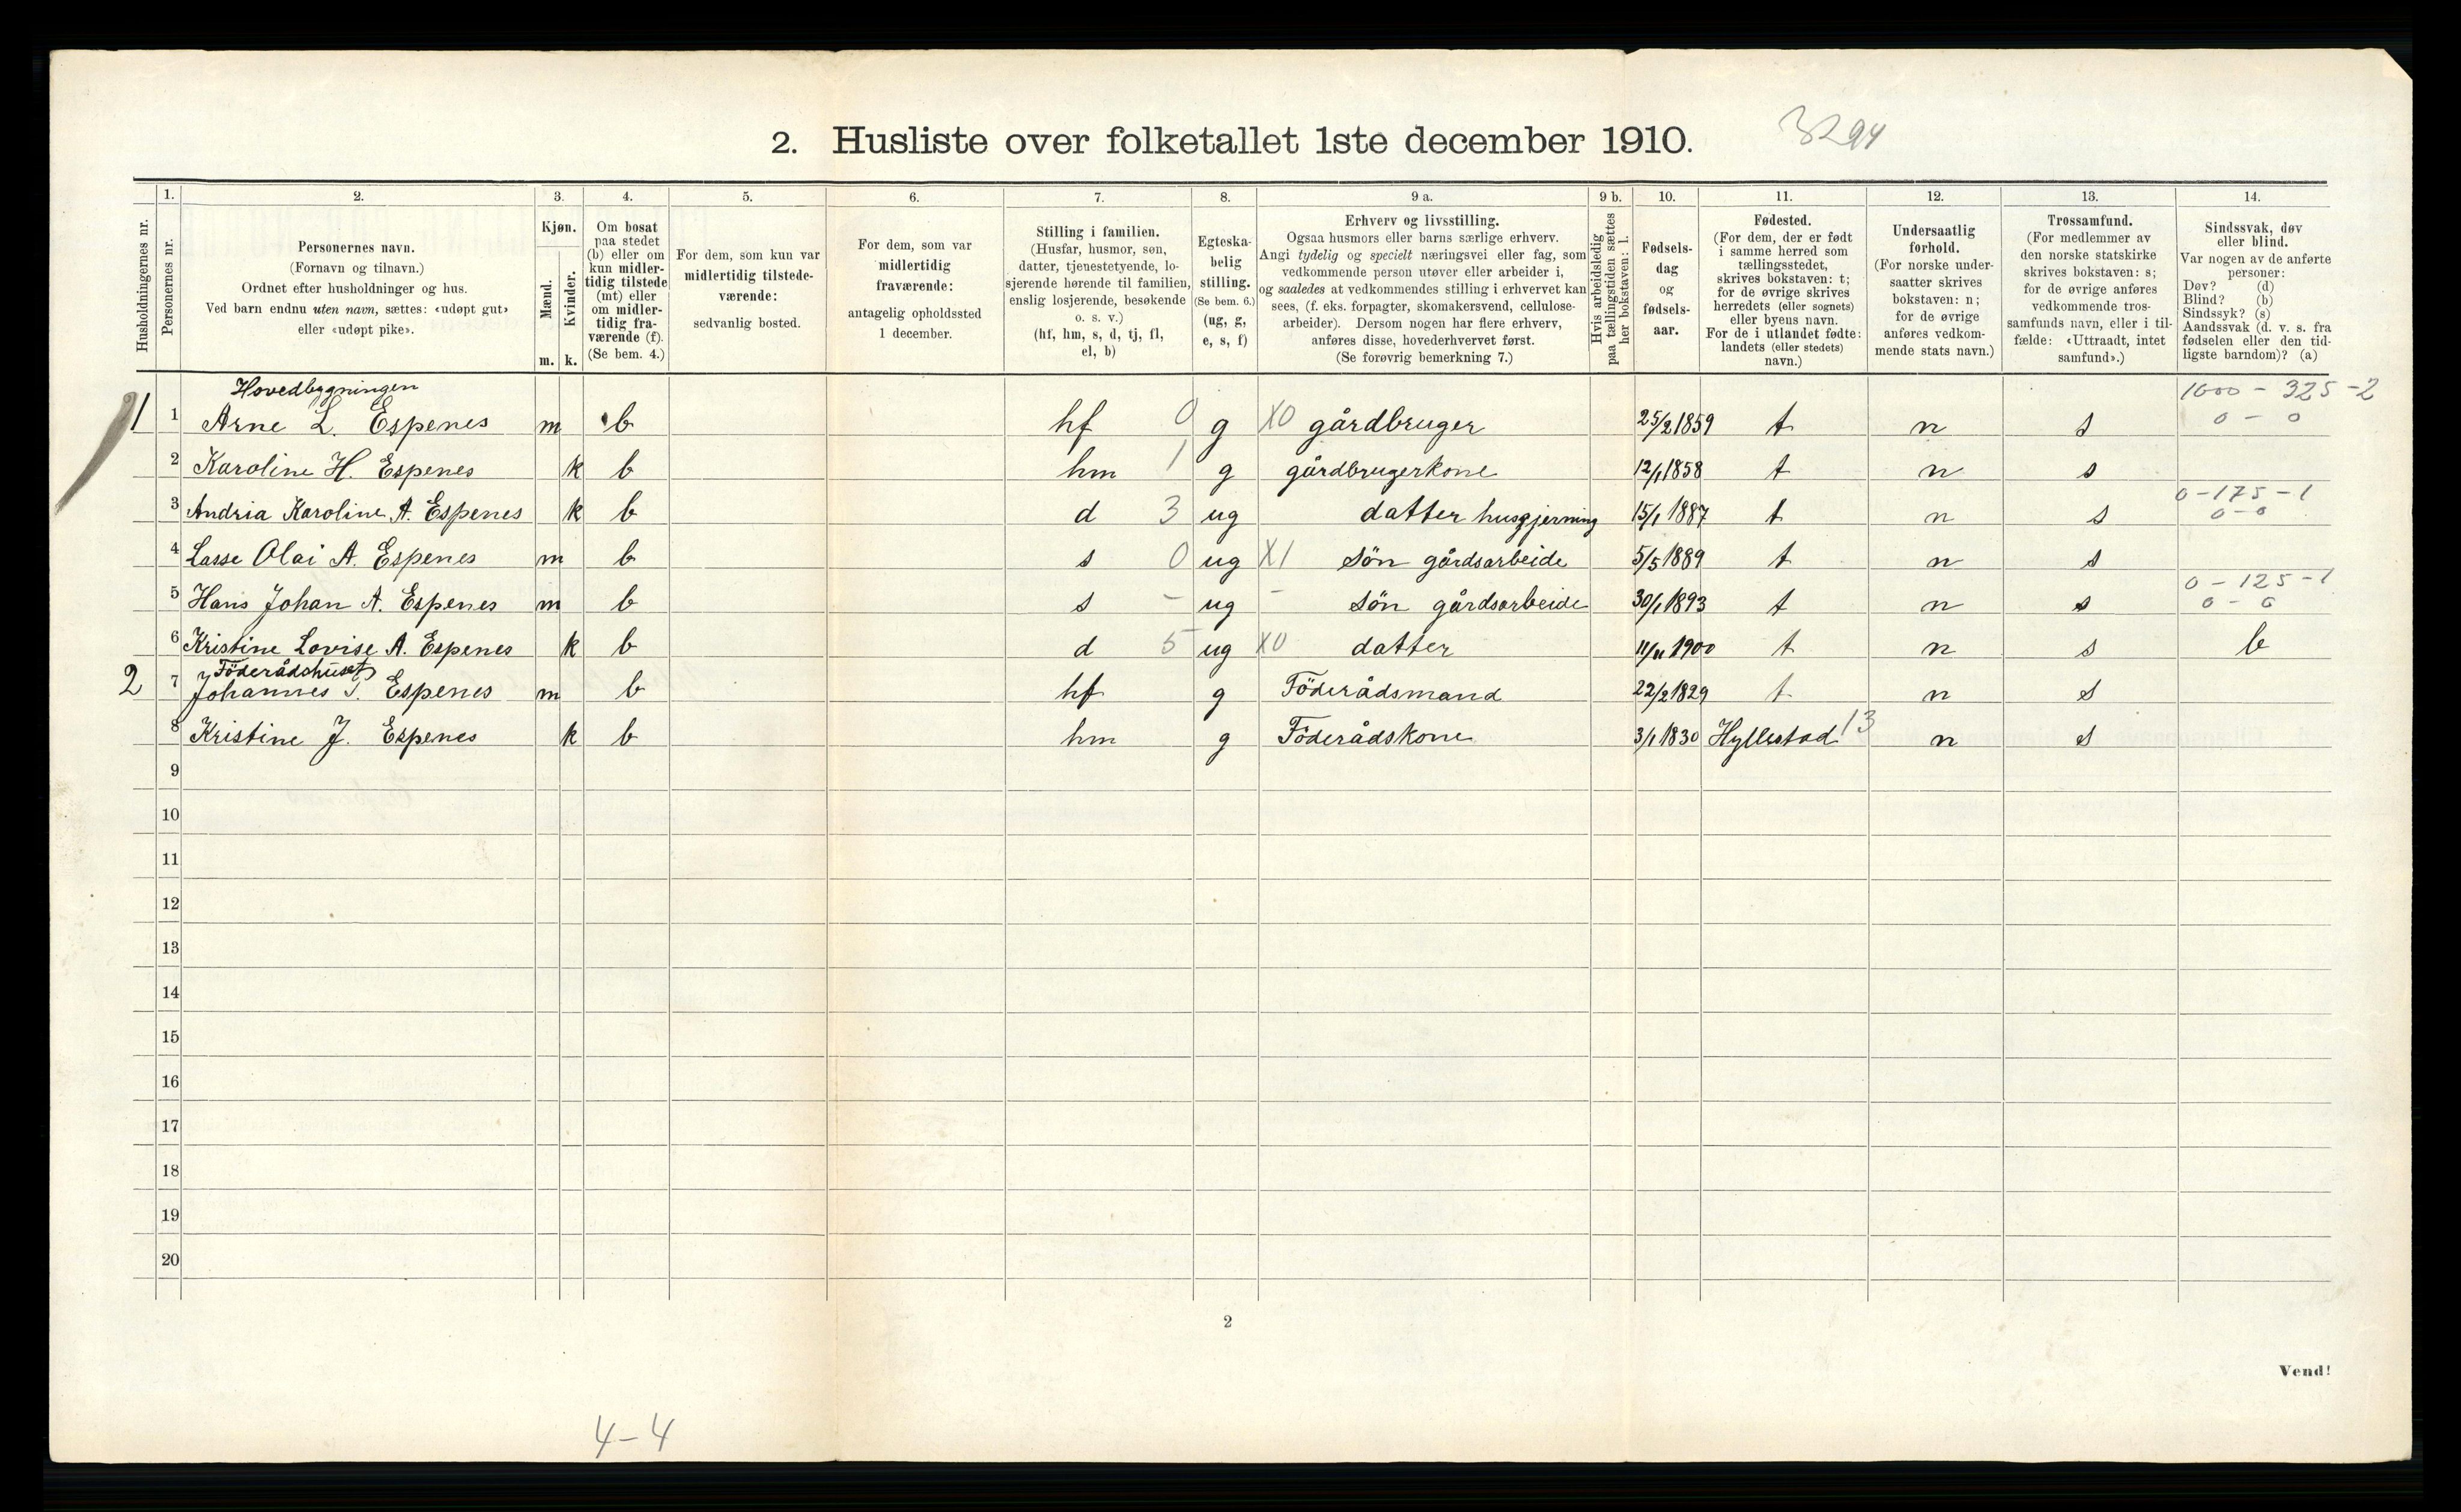 2. Husliste over folketallet 1ste december 1910.
3294
Husholdningernes nr.
1.
Personernes nr.
2.
Personernes navn.
(Fornavn og tilnavn.)
Ordnet efter husholdninger og hus.
Ved barn endnu uten navn, sættes: «udøpt gut»
eller «udøpt pike».
3.
Kjøn.
Mænd.
Kvinder.
m. k.
4.
Om bosat
paa stedet
(b) eller om
kun midler-
tidig tilstede
(mt) eller
om midler-
tidig fra-
værende (f).
(Se bem. 4.)
5.
For dem, som kun var
midlertidig tilstede-
værende:
sedvanlig bosted.
6.
For dem, som var
midlertidig
fraværende:
antagelig opholdssted
1 december.
7.
Stilling i familien.
(Husfar, husmor, søn,
datter, tjenestetyende, lo-
sjerende hørende til familien,
enslig losjerende, besøkende
o. s. v.)
(hf, hm, s, d, tj, fl,
el, b)
8.
Egteska-
belig
stilling.
(Se bem. 6.)
(ug, g,
e, s, f)
9 a.
Erhverv og livsstilling.
Ogsaa husmors eller barns særlige erhverv.
Angi tydelig og specielt næringsvei eller fag, som
vedkommende person utøver eller arbeider i,
og saaledes at vedkommendes stilling i erhvervet kan
sees, (f. eks. forpagter, skomakersvend, cellulose-
arbeider). Dersom nogen har flere erhverv,
anføres disse, hovederhvervet først.
(Se forøvrig bemerkning 7.)
9 b.
Hvis arbeidsledig
paa tællingstiden sættes
her bokstaven: l.
10.
Fødsels-
dag
og
fødsels-
aar.
11.
Fødested.
(For dem, der er født
i samme herred som
tællingsstedet,
skrives bokstaven: t;
for de øvrige skrives
herredets (eller sognets)
eller byens navn.
For de i utlandet fødte:
landets (eller stedets)
navn.)
12.
Undersaatlig
forhold.
(For norske under-
saatter skrives
bokstaven: n;
for de øvrige
anføres vedkom-
mende stats navn.)
13.
Trossamfund.
(For medlemmer av
den norske statskirke
skrives bokstaven: s;
for de øvrige anføres
vedkommende tros-
samfunds navn, eller i til-
fælde: «Uttraadt, intet
samfund».)
14.
Sindssvak, døv
eller blind.
Var nogen av de anførte
personer:
Døv? (d)
Blind? (b)
Sindssyk? (s)
Aandssvak (d. v. s. fra
fødselen eller den tid-
ligste barndom)? (a)
Hovedbygningen 1000 - 325 - 2
1 1 Arne L. Espenes m b hf 0 g X0 gårdbruger 25/2 1859 t n s 0 - 0
2 Karoline H. Espenes k b hm 1 g gårdbrugerkone 12/1 1858 t n s
0 - 175 - 1
3 Andria Karoline A. Espenes k b d 3 ug datter husgjerning 15/1 1887 t n s 0 - 0
4 Lasse Olai A. Espenes m b s 0 ug X1 Søn gårdsarbeide 5/5 1889 t n s
0 - 125 - 1
5 Hans Johan A. Espenes m b s - ug - Søn gårdsarbeide 30/1 1893 t n s 0 - 0
6 Kristine Lovise A. Espenes k b d 5 ug X0 datter 11/11 1900 t n s b
Föderådshuset
2 7 Johannes Espenes m b hf g Föderådsmand 22/2 1829 t n s
8 Kristine J. Espenes k b hm g Föderådskone 3/1 1830 Hyllestad 13 n s
9
10
11
12
13
14
15
16
17
18
19
20
2
Vend!
4-4